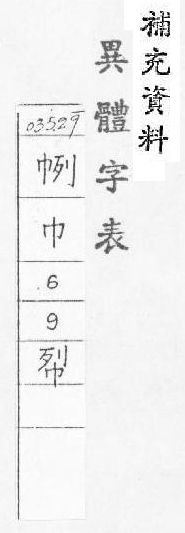 補充資料
異體字表
03529
巾
6
9